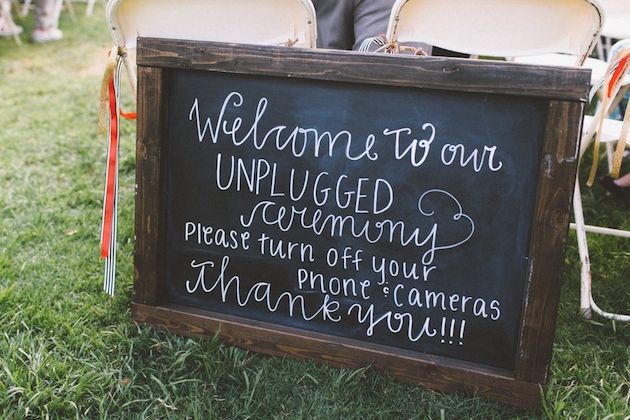 Welcome to our
UNPLUGGED
ceremony
Please turn off your
Phone & Cameras
Thank you!!!